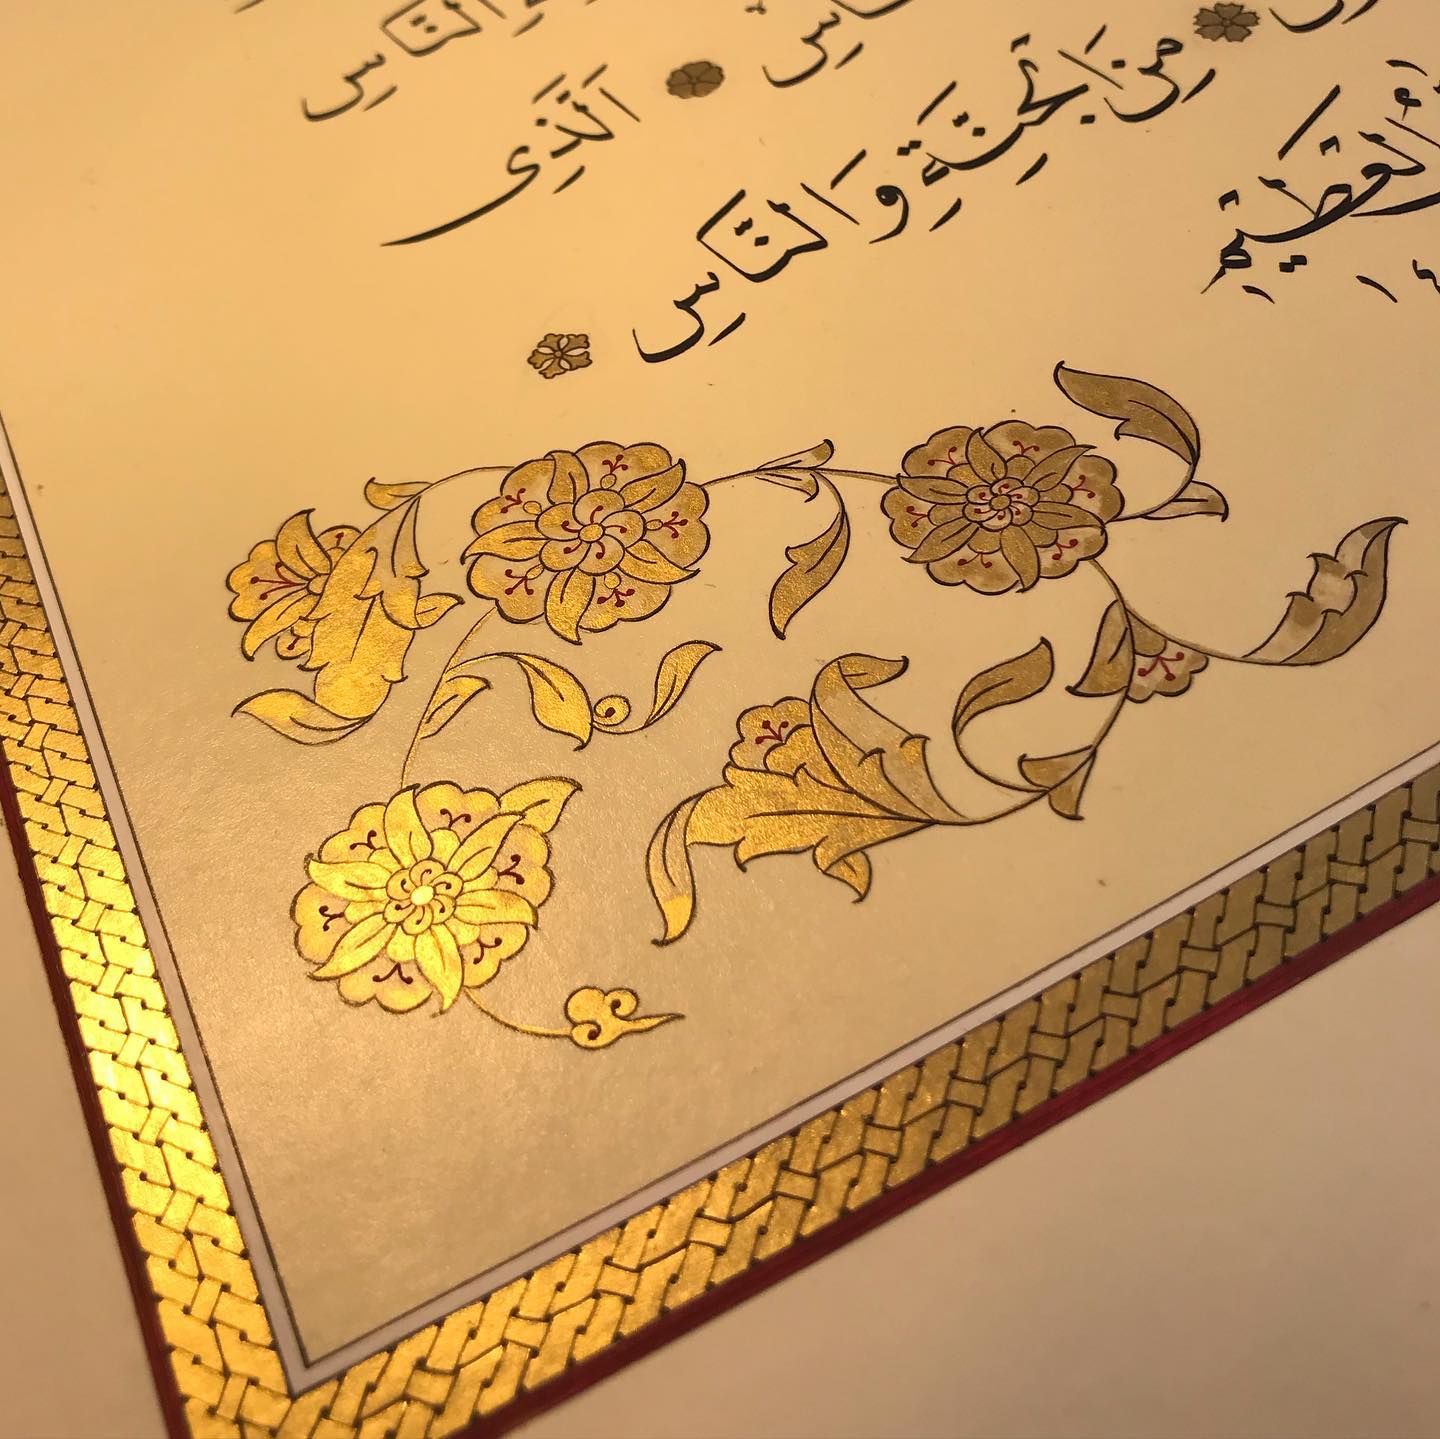 النَّاسِ
اَلَّذِى
مِنَ الْجِنَّةِ وَالنَّاسِ
الْعَظِيمِ